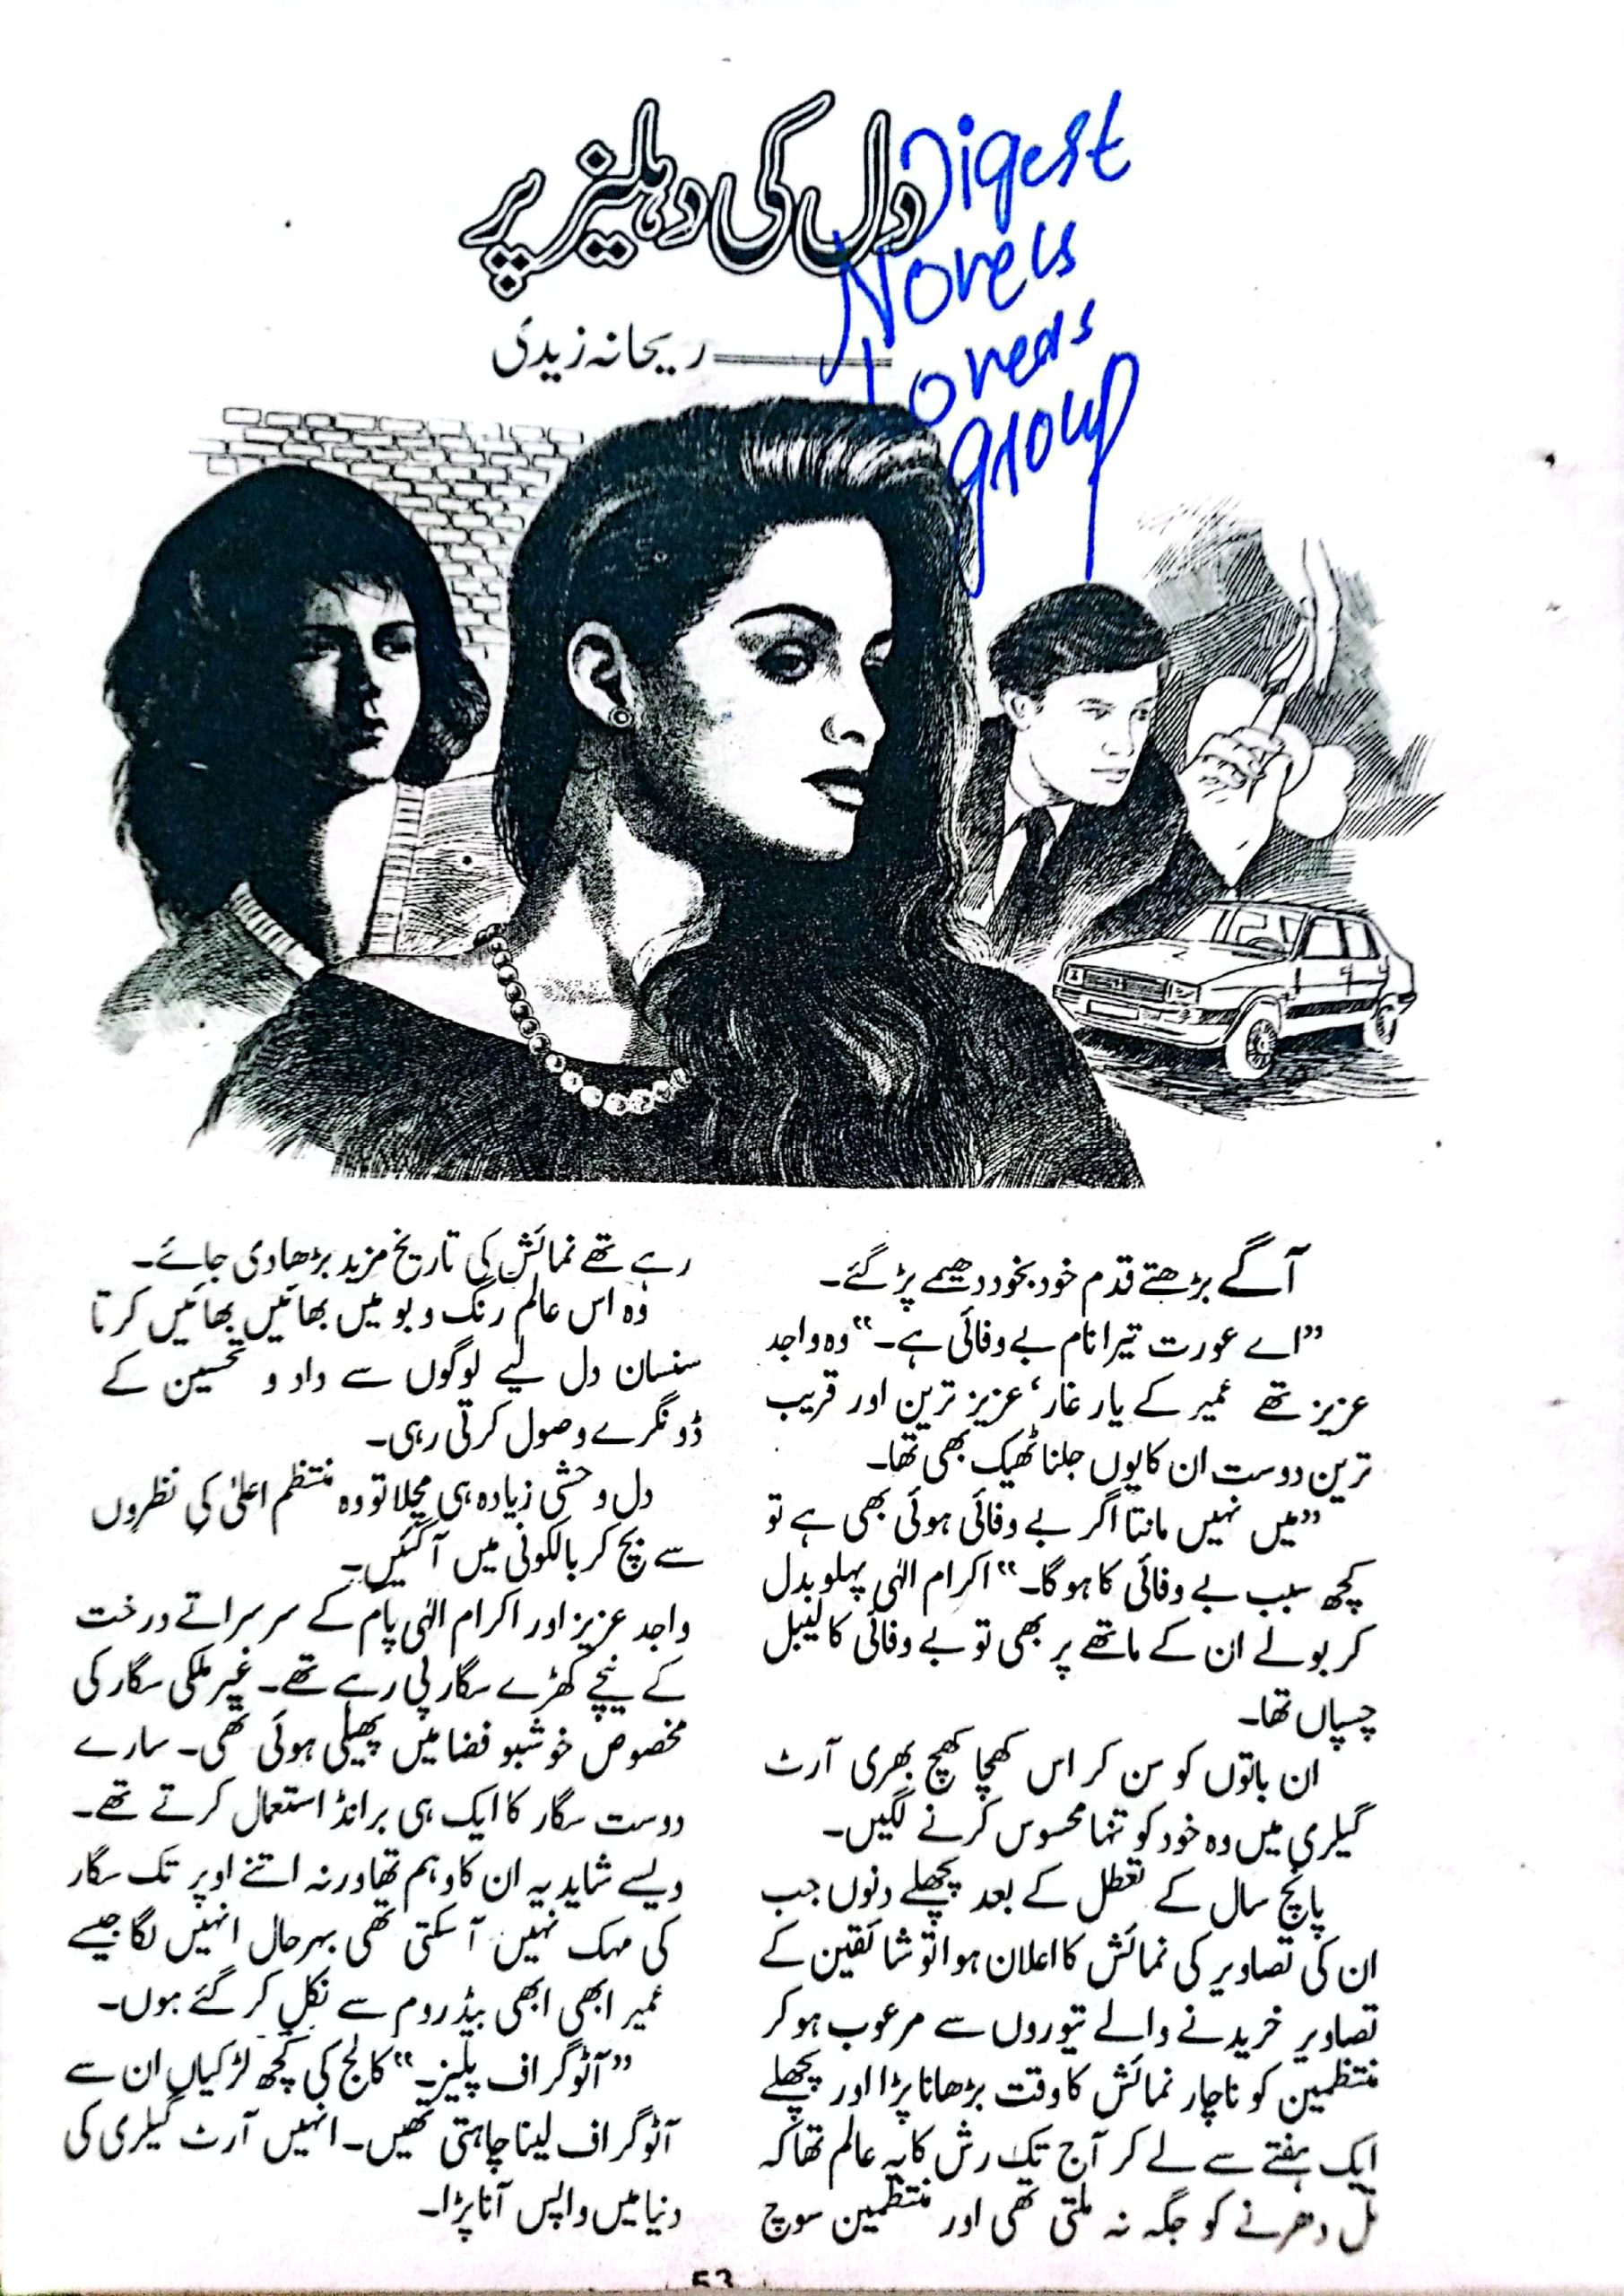 دل کی دہلیز پر
ریحانہ زیدی
Digest
Novels
Lovers
group
آگے بڑھتے قدم خود بخود دھیمے پڑ گئے۔
”اے عورت تیرا نام بے وفائی ہے۔“ وہ واجد
عزیز تھے عمیر کے یار غار، عزیز ترین اور قریب
ترین دوست ان کا یوں جلنا ٹھیک بھی تھا۔
”میں نہیں مانتا اگر بے وفائی ہوئی بھی ہے تو
کچھ سبب بے وفائی کا ہو گا۔“ اکرام الٰہی پہلو بدل
کر بولے ان کے ماتھے پر بھی تو بے وفائی کا لیبل
چسپاں تھا۔
ان باتوں کو سن کر اس کھچا کھچ بھری آرٹ
گیلری میں وہ خود کو تنہا محسوس کرنے لگیں۔
پانچ سال کے تعطل کے بعد پچھلے دنوں جب
ان کی تصاویر کی نمائش کا اعلان ہوا تو شائقین کے
تصاویر خریدنے والے تیوروں سے مرعوب ہو کر
منتظمین کو ناچار نمائش کا وقت بڑھانا پڑا اور پچھلے
ایک ہفتے سے لے کر آج تک رش کا یہ عالم تھا کہ
تل دھرنے کو جگہ نہ ملتی تھی اور منتظمین سوچ
رہے تھے نمائش کی تاریخ مزید بڑھا دی جائے۔
وہ اس عالم رنگ و بو میں بھائیں بھائیں کرتا
سنسان دل لیے لوگوں سے داد و تحسین کے
ڈونگرے وصول کرتی رہی۔
دل وحشی زیادہ ہی مچلا تو وہ منتظم اعلیٰ کی نظروں
سے بچ کر بالکونی میں آ گئیں۔
واجد عزیز اور اکرام الٰہی پام کے سرسراتے درخت
کے نیچے کھڑے سگار پی رہے تھے۔ غیر ملکی سگار کی
مخصوص خوشبو فضا میں پھیلی ہوئی تھی۔ سارے
دوست سگار کا ایک ہی برانڈ استعمال کرتے تھے۔
ویسے شاید یہ ان کا وہم تھا ورنہ اتنے اوپر تک سگار
کی مہک نہیں آ سکتی تھی بہرحال انہیں لگا جیسے
عمیر ابھی ابھی بیڈ روم سے نکل کر گئے ہوں۔
”آٹوگراف پلیز۔“ کالج کی کچھ لڑکیاں ان سے
آٹوگراف لینا چاہتی تھیں۔ انہیں آرٹ گیلری کی
دنیا میں واپس آنا پڑا۔
53